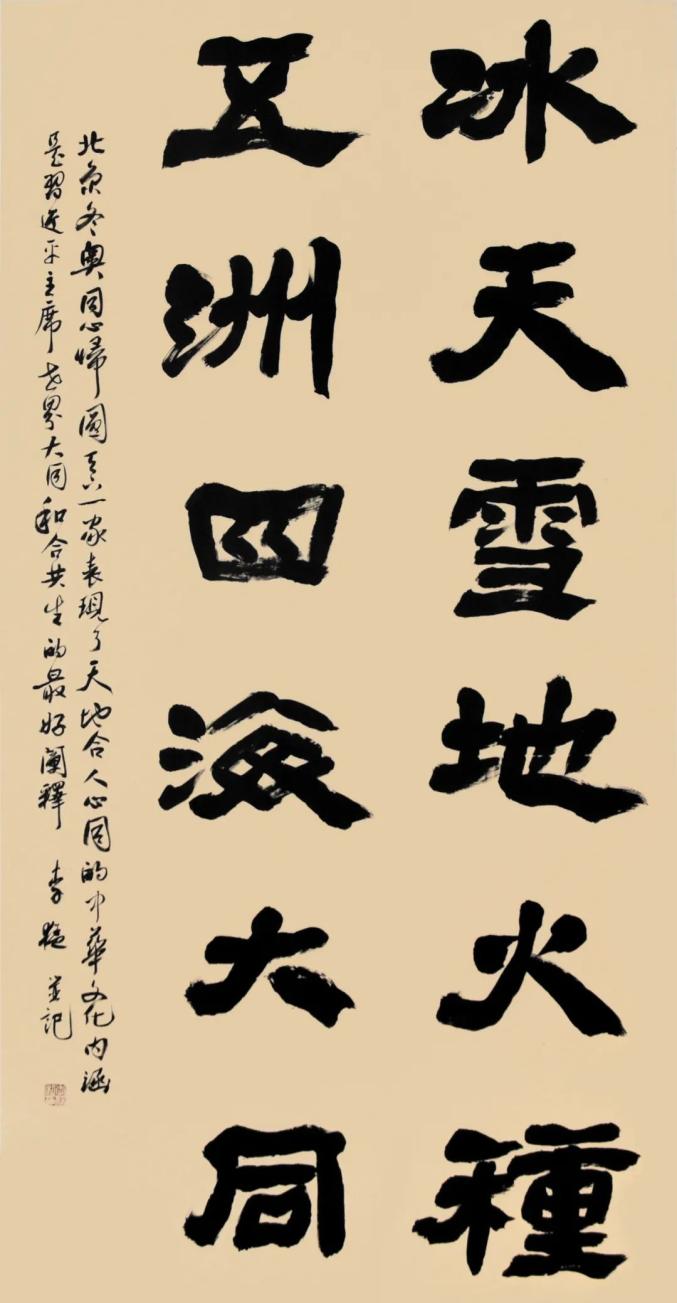 冰天雪地火種
五洲四海大同
北京冬奧同心歸圓天下一家表現了天地合人心同的中華文化内涵
是習近平主席世界大同和合共生的最好闡釋 李 並記